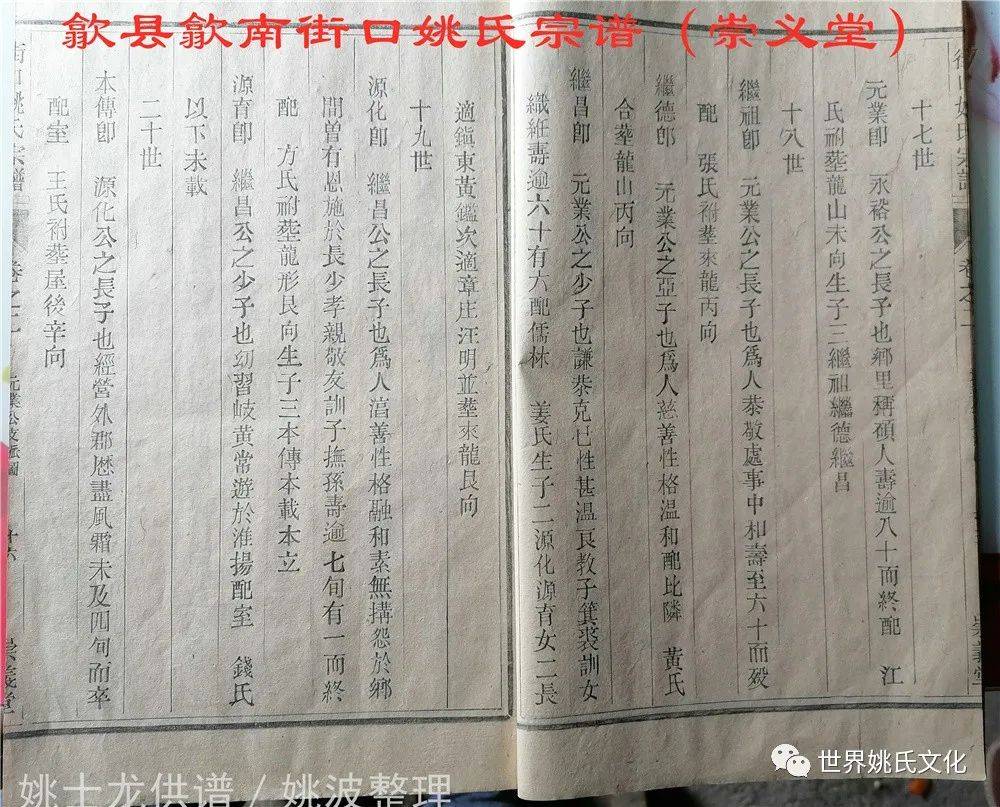 歙县歙南街口姚氏宗谱（崇义堂）
十七世
元業卽 永裕公之長子也鄉里稱碩人壽逾八十而終配 江
氏祔塟龍山未向生子三繼祖繼德繼昌
十八世
繼祖卽 元業公之長子也爲人恭敬處事中和壽至六十而殁
配 張氏祔塟來龍丙向
繼德卽 元業公之亞子也爲人慈善性格温和配比隣 黃氏
合塟龍山丙向
繼昌卽 元業公之少子也謙恭克已性甚温良教子箕裘訓女
織絍壽逾六十有六配儒林 姜氏生子二源化源育女二長
適鎮東黃鑑次適章庄汪明並塟來龍艮向
十九世
源化卽 繼昌公之長子也爲人淯善性格融和素無搆怨於鄉
間曽有恩施於長少孝親敬友訓子撫孫壽逾七旬有一而終
配 方氏祔塟龍形艮向生子三本傳本載本立
源育卽 繼昌公之少子也幼習岐黃常遊於淮揚配室 錢氏
以下未載
二十世
本傳卽 源化公之長子也經營外郡歴盡風霜未及四旬而卒
配室 王氏祔塟屋後辛向
姚氏宗譜
卷之二
元業公支派圖
十六
崇義堂
世界姚氏文化
姚士龙供谱 / 姚波整理